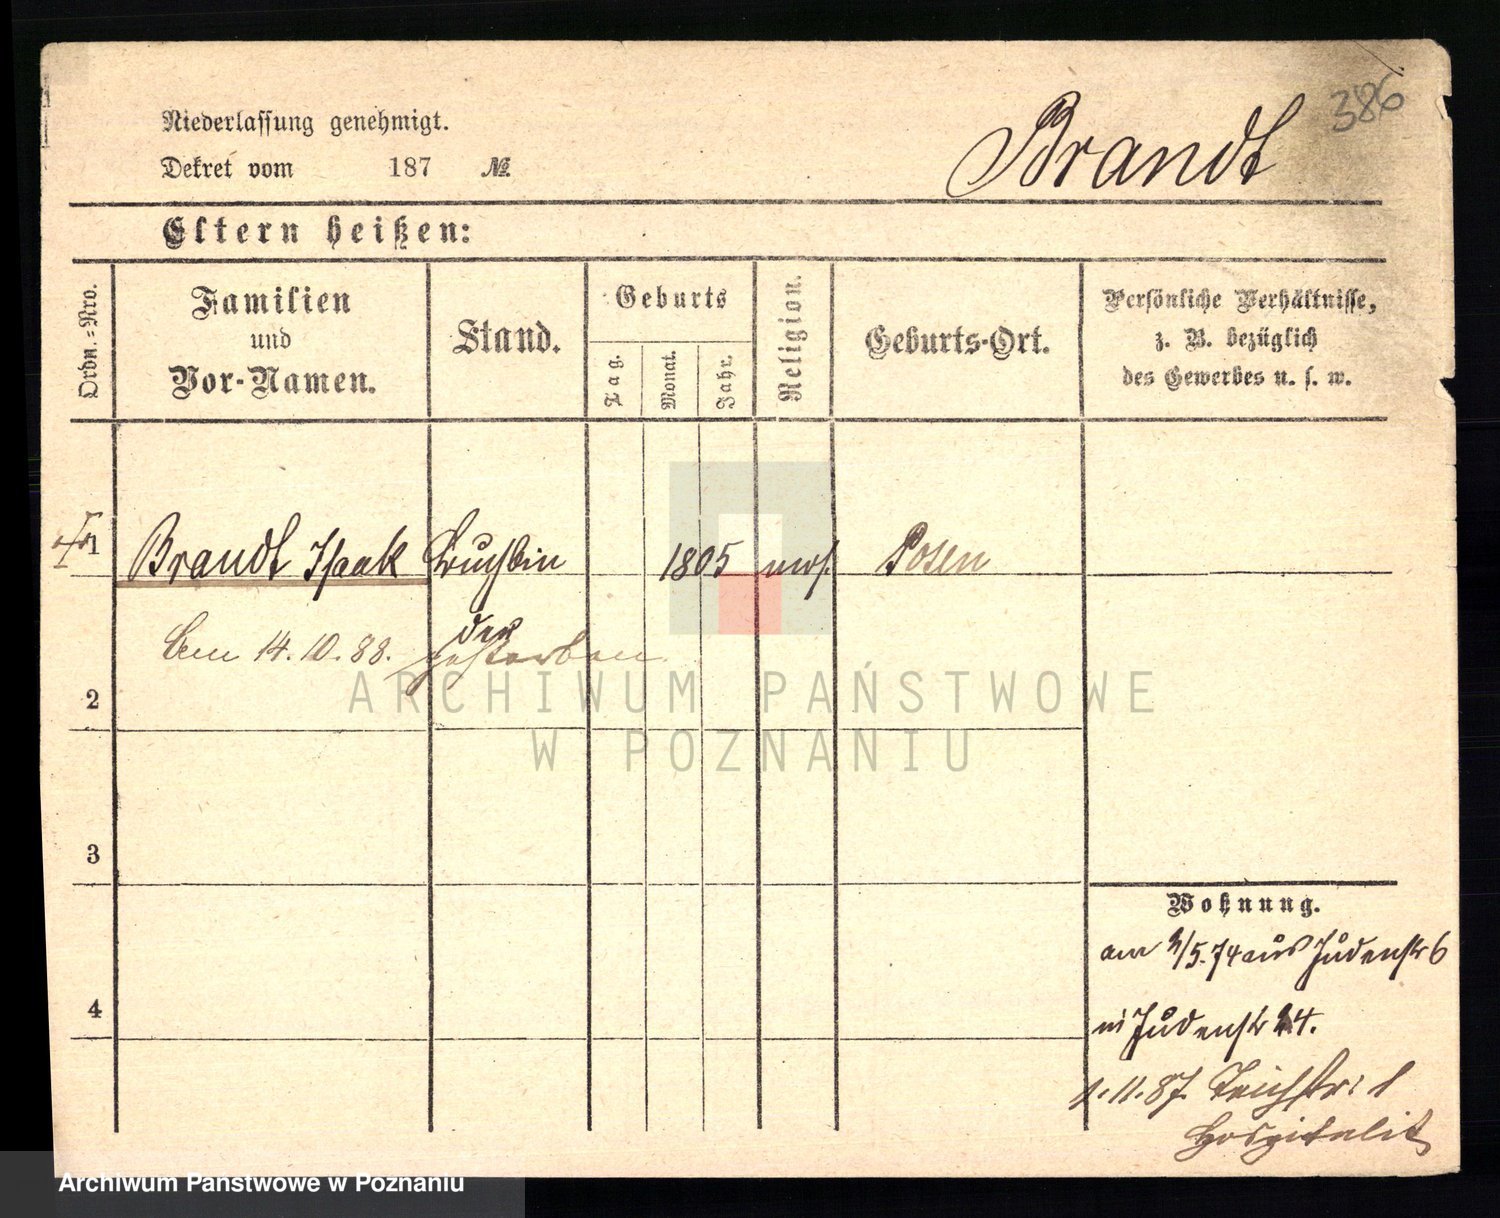 386
Brandt
Niederlassung genehmigt.
Dekret vom 187 №
Eltern heißen:
Ordn.-Nro.
Familien
und
Vor-Namen.
Stand.
Geburts
Tag.
Monat.
Jahr.
Religion.
Geburts-Ort.
Persönliche Verhältnisse,
z. B. bezüglich
des Gewerbes u. s. w.
1 Brandt Isaak 1805 mos. Posen
der
14.10.88. gestorben
2
3
4
Wohnung.
am /5.74 aus Judenstr 6
in Judenstr 24.
1.11.87. Teichstr: 1
Hospitalit
ARCHIWUM PAŃSTWOWE
W POZNANIU
Archiwum Państwowe w Poznaniu